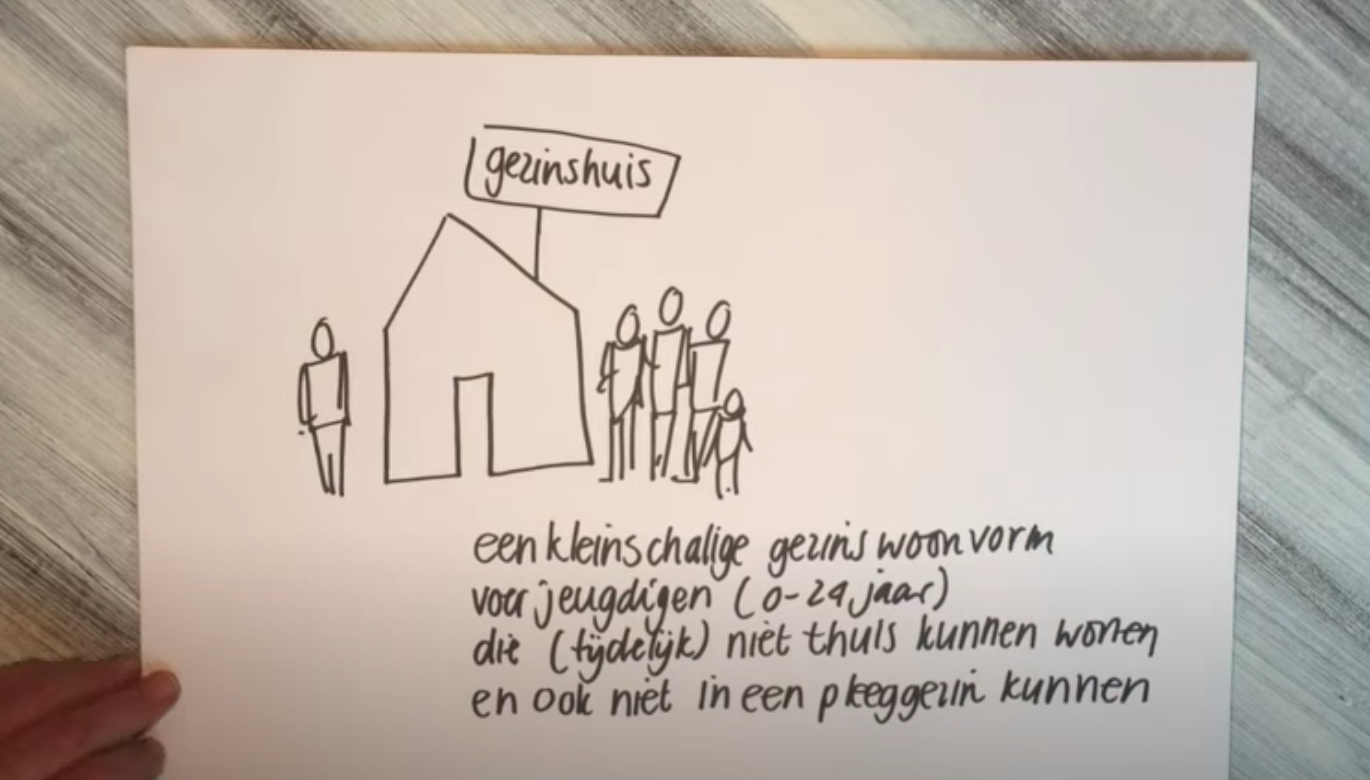 gezinshuis
een kleinschalige gezinswoonvorm
voor jeugdigen (0-24 jaar)
die (tijdelijk) niet thuis kunnen wonen
en ook niet in een pleeggezin kunnen